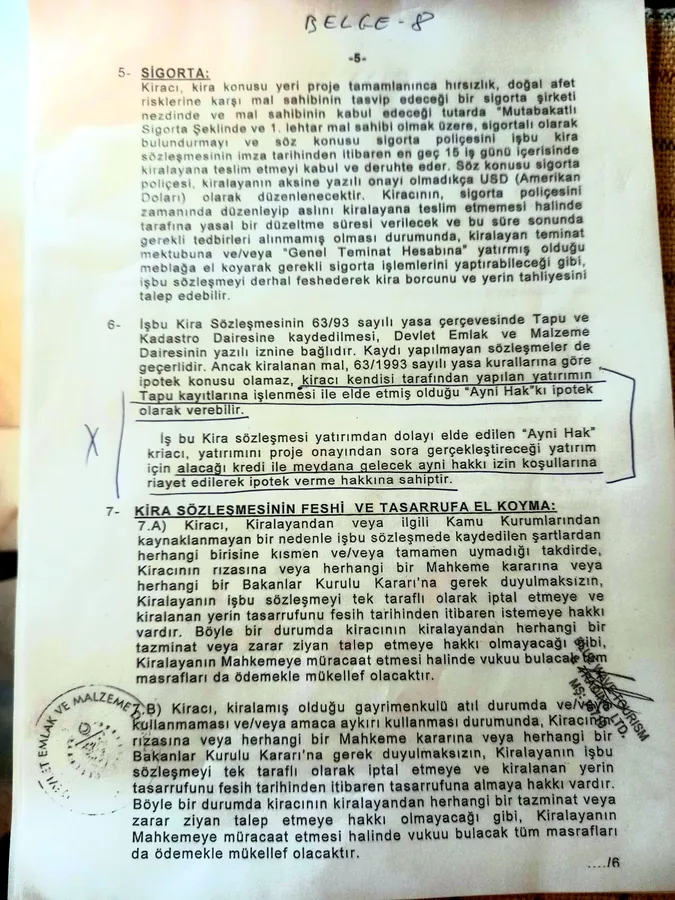 BELGE-8
-5-
5- SİGORTA:
Kiracı, kira konusu yeri proje tamamlanınca hırsızlık, doğal afet
risklerine karşı mal sahibinin tasvip edeceği bir sigorta şirketi
nezdinde ve mal sahibinin kabul edeceği tutarda "Mutabakatlı
Sigorta Şeklinde ve 1. lehtar mal sahibi olmak üzere, sigortalı olarak
bulundurmayı ve söz konusu sigorta poliçesini işbu kira
sözleşmesinin imza tarihinden itibaren en geç 15 iş günü içerisinde
kiralayana teslim etmeyi kabul ve deruhte eder. Söz konusu sigorta
poliçesi, kiralayanın aksine yazılı onayı olmadıkça USD (Amerikan
Doları) olarak düzenlenecektir. Kiracının, sigorta poliçesini
zamanında düzenleyip aslını kiralayana teslim etmemesi halinde
tarafına yasal bir düzeltme süresi verilecek ve bu süre sonunda
gerekli tedbirleri alınmamış olması durumunda, kiralayan teminat
mektubuna ve/veya "Genel Teminat Hesabına" yatırmış olduğu
meblağa el koyarak gerekli sigorta işlemlerini yaptırabileceği gibi,
işbu sözleşmeyi derhal feshederek kira borcunu ve yerin tahliyesini
talep edebilir.
6- İşbu Kira Sözleşmesinin 63/93 sayılı yasa çerçevesinde Tapu ve
Kadastro Dairesine kaydedilmesi, Devlet Emlak ve Malzeme
Dairesinin yazılı iznine bağlıdır. Kaydı yapılmayan sözleşmeler de
geçerlidir. Ancak kiralanan mal, 63/1993 sayılı yasa kurallarına göre
ipotek konusu olamaz, kiracı kendisi tarafından yapılan yatırımın
Tapu kayıtlarına işlenmesi ile elde etmiş olduğu "Ayni Hak"kı ipotek
olarak verebilir.
X
İş bu Kira sözleşmesi yatırımdan dolayı elde edilen "Ayni Hak"
kriacı, yatırımını proje onayından sora gerçekleştireceği yatırım
için alacağı kredi ile meydana gelecek ayni hakkı izin koşullarına
riayet edilerek ipotek verme hakkına sahiptir.
7- KİRA SÖZLEŞMESİNİN FESHİ VE TASARRUFA EL KOYMA:
7.A) Kiracı, Kiralayandan veya ilgili Kamu Kurumlarından
kaynaklanmayan bir nedenle işbu sözleşmede kaydedilen şartlardan
herhangi birisine kısmen ve/veya tamamen uymadığı takdirde,
Kiracının rızasına veya herhangi bir Mahkeme kararına veya
herhangi bir Bakanlar Kurulu Kararı'na gerek duyulmaksızın,
Kiralayanın işbu sözleşmeyi tek taraflı olarak iptal etmeye ve
kiralanan yerin tasarrufunu fesih tarihinden itibaren istemeye hakkı
vardır. Böyle bir durumda kiracının kiralayandan herhangi bir
tazminat veya zarar ziyan talep etmeye hakkı olmayacağı gibi,
Kiralayanın Mahkemeye müracaat etmesi halinde vukuu bulacak tüm
masrafları da ödemekle mükellef olacaktır.
7.B) Kiracı, kiralamış olduğu gayrimenkulü atıl durumda ve/veya
kullanmaması ve/veya amaca aykırı kullanması durumunda, Kiracının
rızasına veya herhangi bir Mahkeme kararına veya herhangi bir
Bakanlar Kurulu Kararı'na gerek duyulmaksızın, Kiralayanın işbu
sözleşmeyi tek taraflı olarak iptal etmeye ve kiralanan yerin
tasarrufunu fesih tarihinden itibaren tasarrufuna almaya hakkı vardır.
Böyle bir durumda kiracının kiralayandan herhangi bir tazminat veya
zarar ziyan talep etmeye hakkı olmayacağı gibi, Kiralayanın
Mahkemeye müracaat etmesi halinde vukuu bulacak tüm masrafları
da ödemekle mükellef olacaktır.
..../6
EMLAK VE MALZEME
TOURISM
LTD.